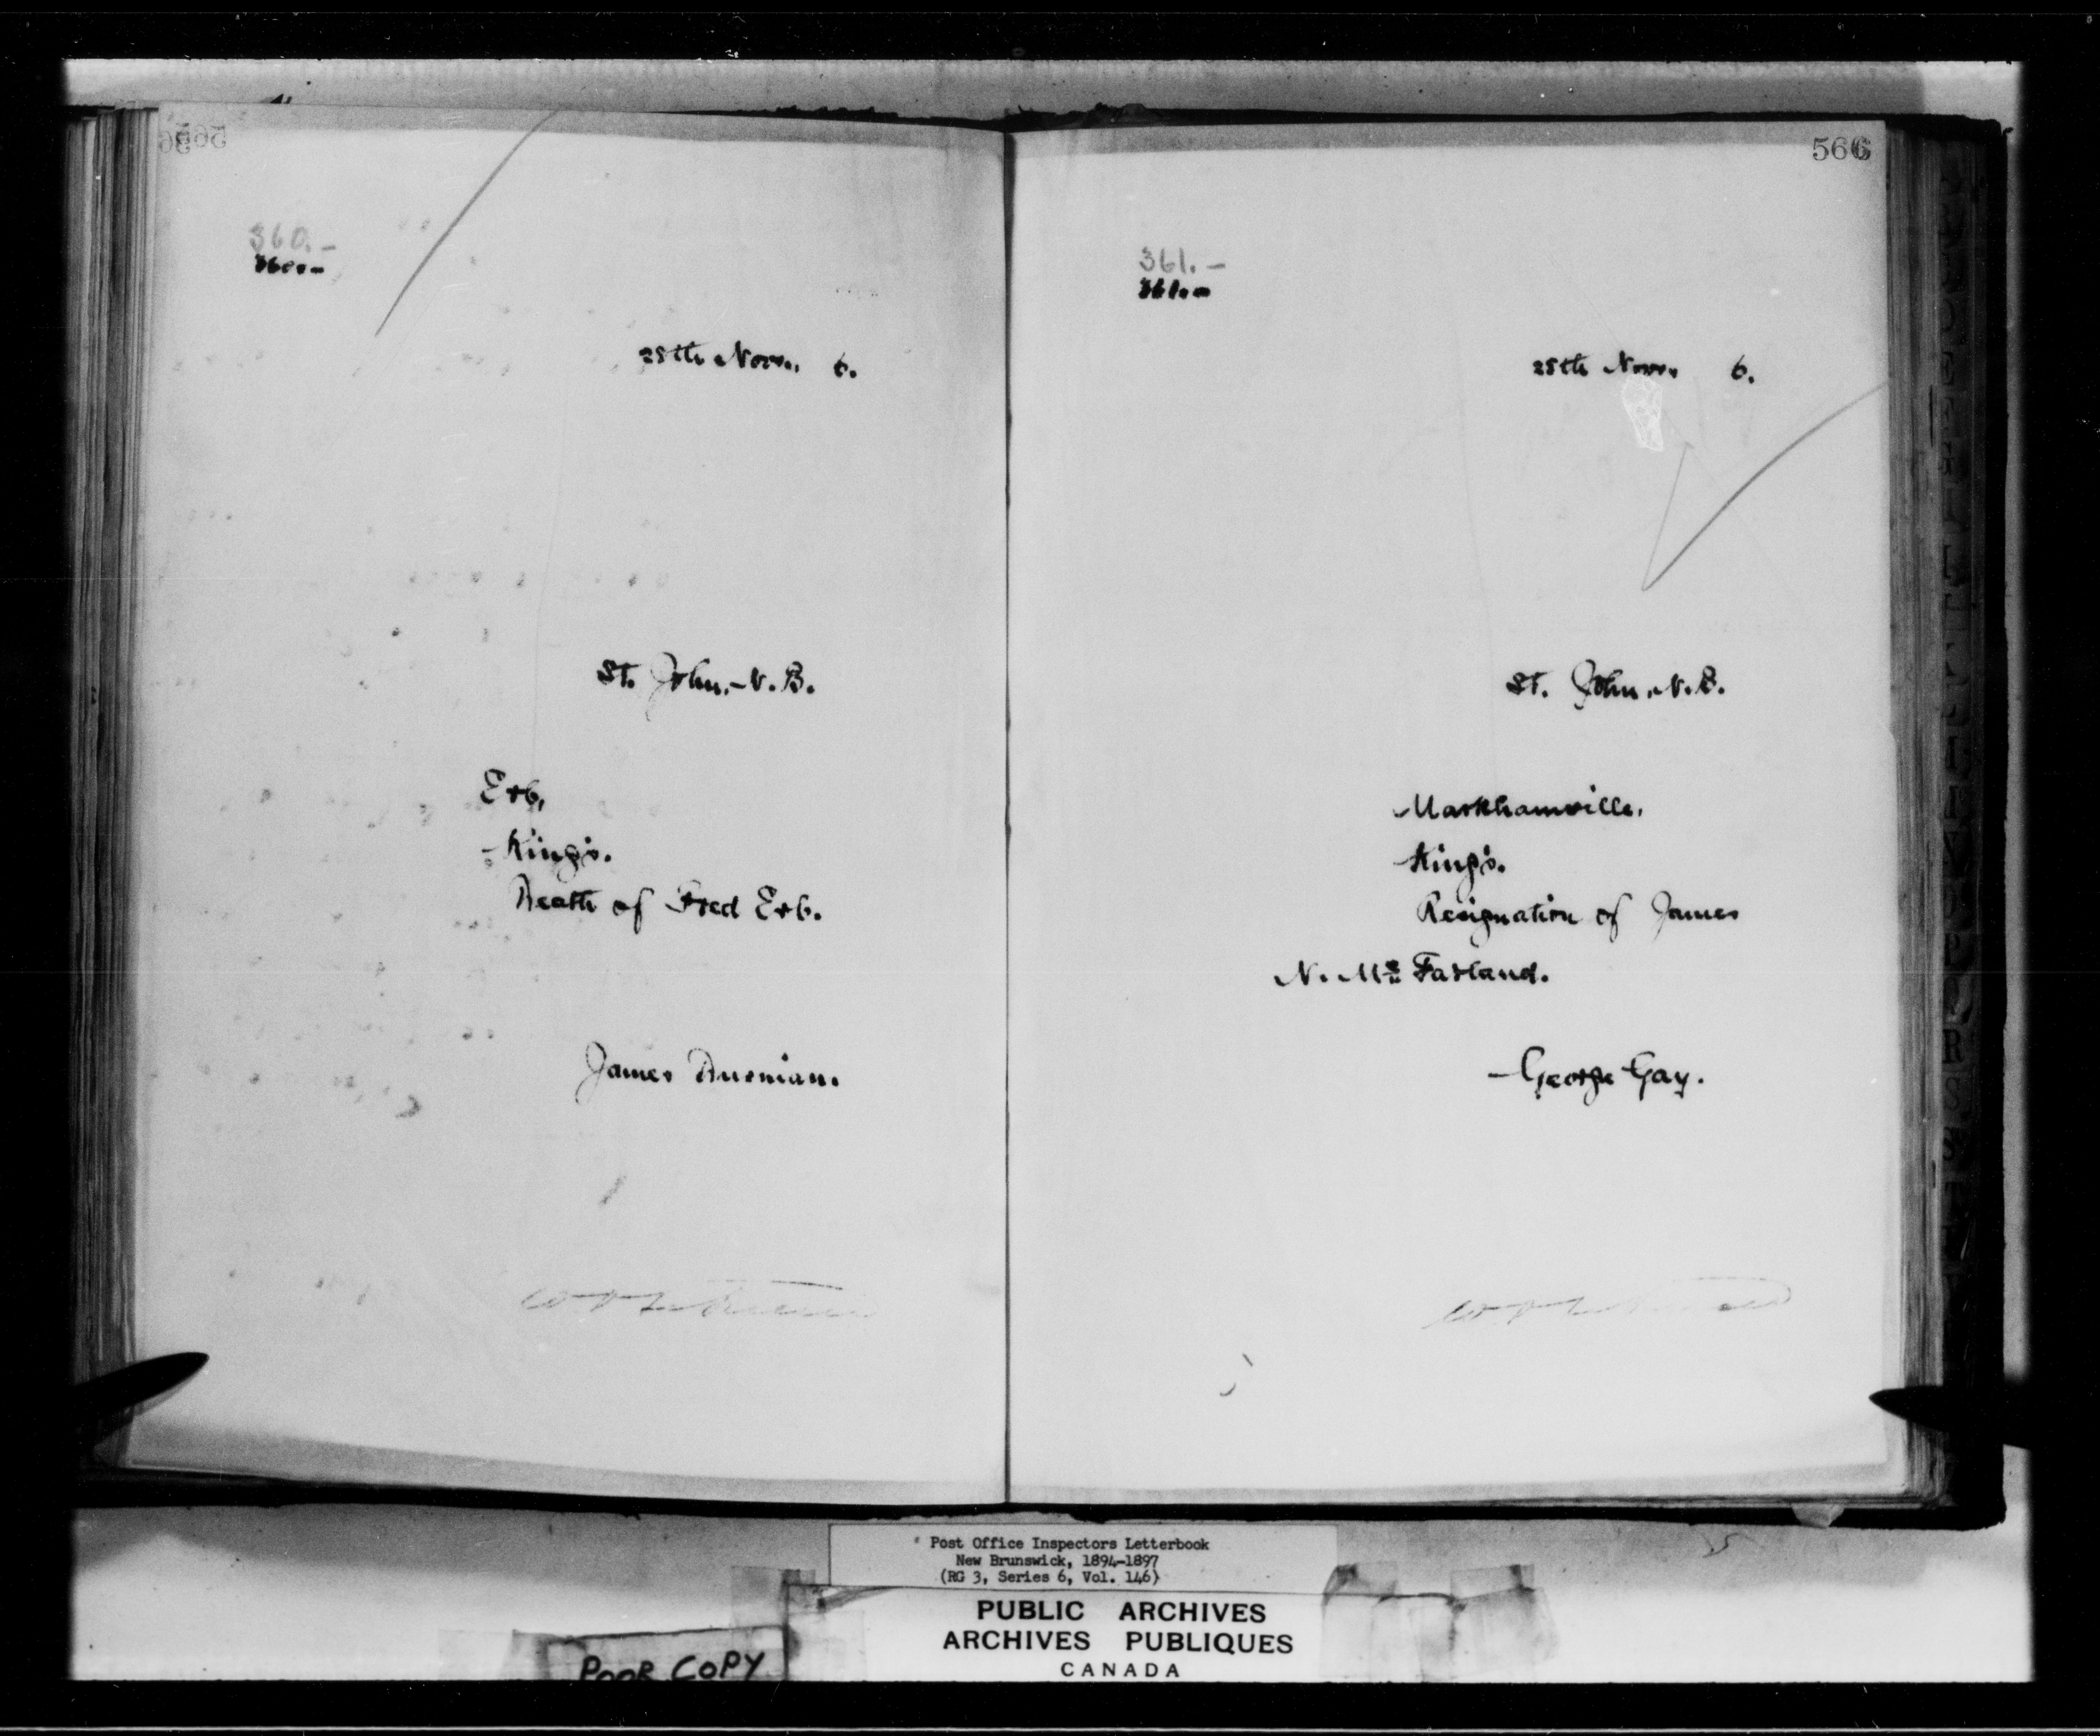 360.-
360.-
25th Nov., 6.
St. John, N.B.
Erb,
King's.
Death of Fred Erb.
James
566
361.-
361.-
25th Nov. 6.
St. John, N.B.
Markhamville,
King's.
Resignation of James
N. Mc Farland.
George Gay.
Post Office Inspectors Letterbook
New Brunswick, 1894-1897
(RG 3, Series 6, Vol. 146)
PUBLIC ARCHIVES
ARCHIVES PUBLIQUES
CANADA
POOR COPY